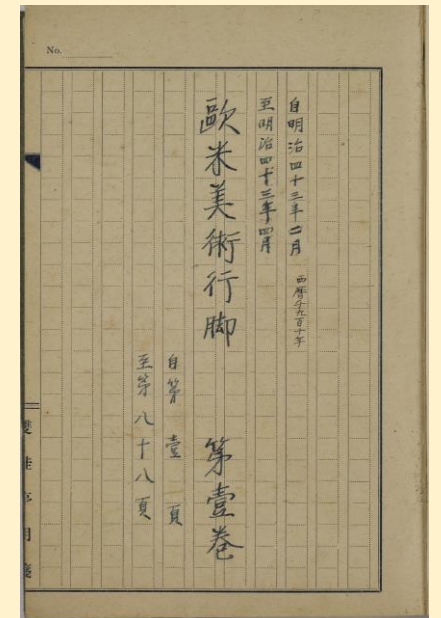 No.
自明治四十三年二月
西曆千九百十年
至明治四十三年四月
歐米美術行脚 第壹卷
自第壹頁
至第八十八頁